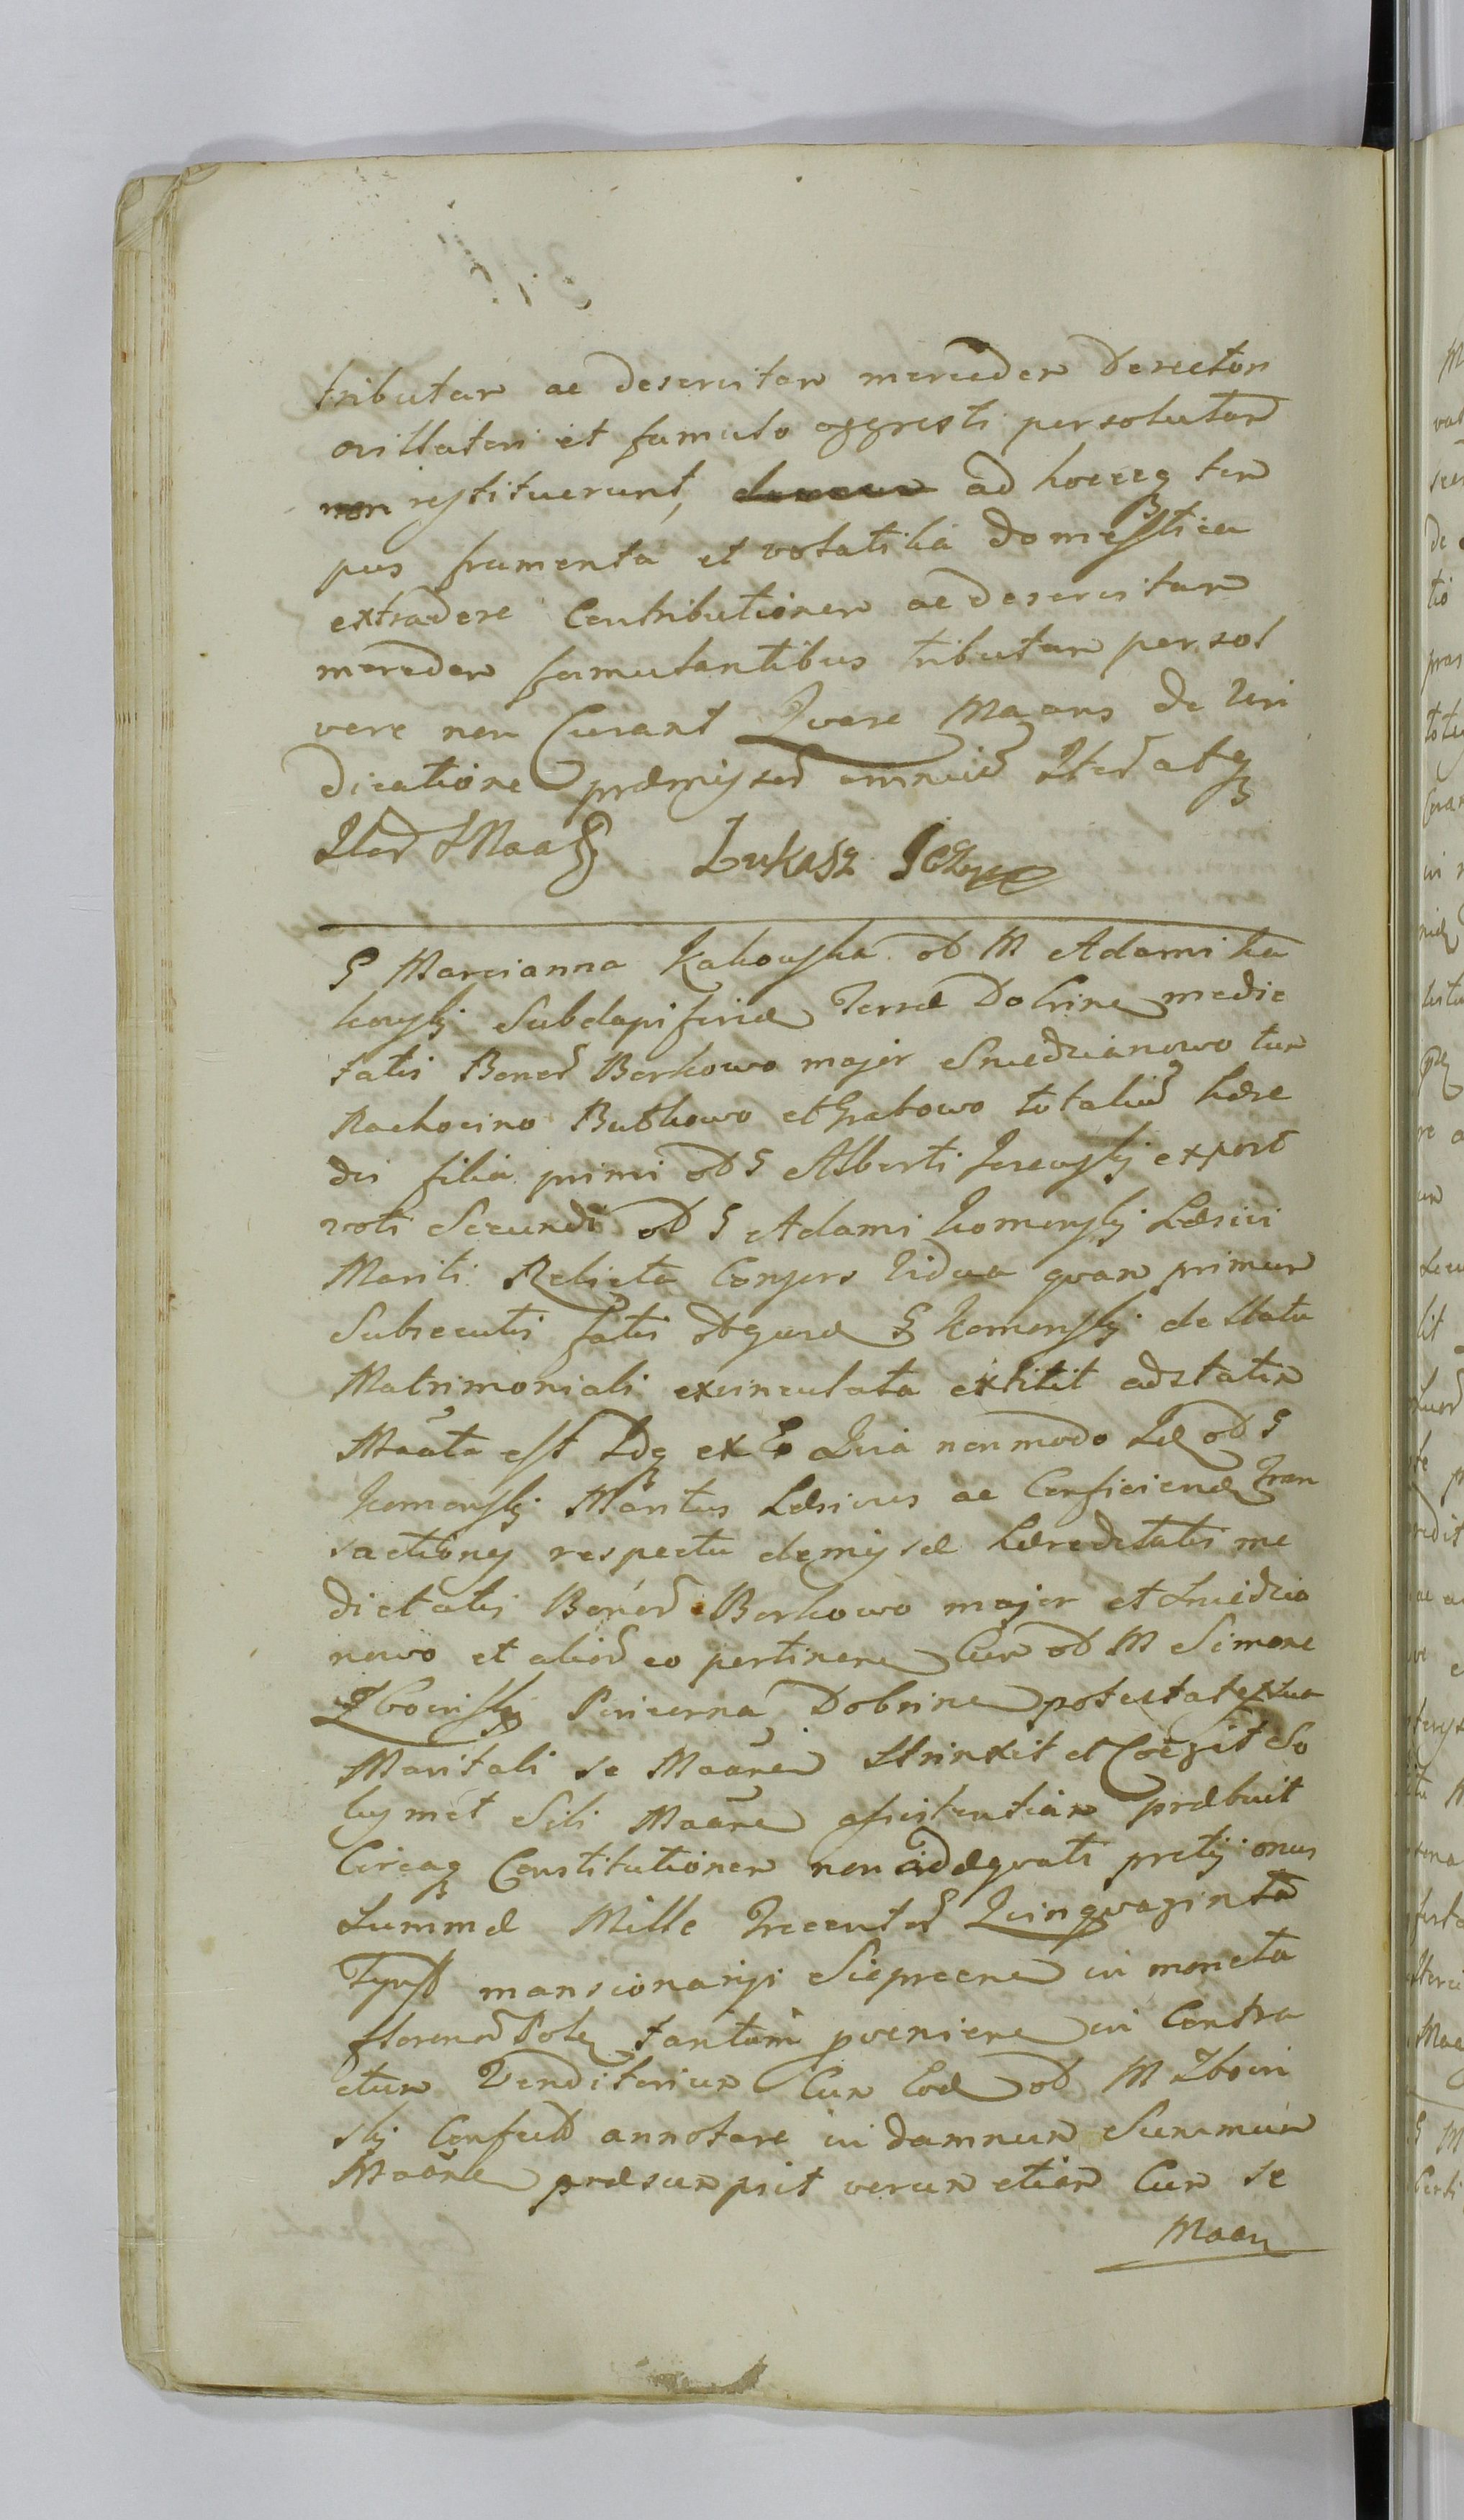 tributam ac deservitam mercedem Directori
ovillatori et famulo aggresti persolutam
non restituerunt, ad hocce tem
pus frumenta et volatilia domestica
extradere Contributionem ac deservitam
mercedem famulantibus tributam persol
vere non Curant Quare Maans de Vin
dicatione præmissor omnium Iteratq
Iter Maa Łukasz
G Marcianna Kakowska olim M Adami Ka
kowskj Subdapiferidæ Terræ Dobrinen medie
tatis Bonor Borkowo major Sniedzianowo tum
Rachocino Butkowo et Grabowo totalium hære
dis filia primi olim G Alberti Jerewskj ex post
voti Secundi olim G Adami Komorskj Læsivi
Mariti Relicta Conjuns Vidua quam primum
Subsecutis fatis olim G Komorskj de Statu
Matrimoniali exvinculata extitit adstatim
Maata est Idq ex Eo Quia non modo Id olim G
Komorskj Maritus Læsivus ac Conficiend Tran
sactiones respectu demissæ hæreditatis me
dietatis Bonor Borkowo major et Sniedzia
nowo et alior eo pertinen Cum olim M Simone
Zboinskj Pincerna Dobrinen potestate sua
Maritali se Maanem Strinxit et Coegit So
lusmet Sibi Maane assistentiam præbuit
Circaq Constitutionem non adæquati pretij onus
Summæ Mille Trecentor Quinquaginta
Tynff mansionarijs Sieprcen in moneta
floren Pol tantum provenien in Contra
ctum Venditorium Cum Eod olim M Zboin
skj Confectum annotare in damnum Summum
Maane præsumpsit verum etiam Cum se
Maan